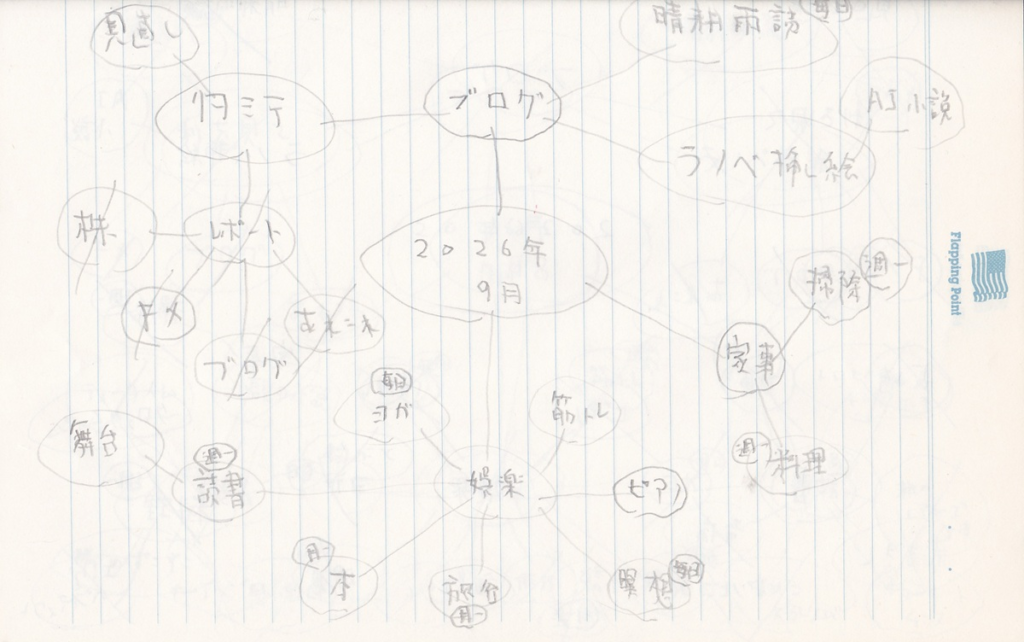 見直し
毎日
晴耕雨読
ブログ
AI小説
ラノベ挿し絵
株
レポート
2026年
9月
週一
掃除
キメ
ブログ
家事
毎日
ヨガ
筋トレ
舞台
週一
読書
娯楽
週一
料理
ピアノ
月一
本
旅行
月一
瞑想
毎日
Flapping Point